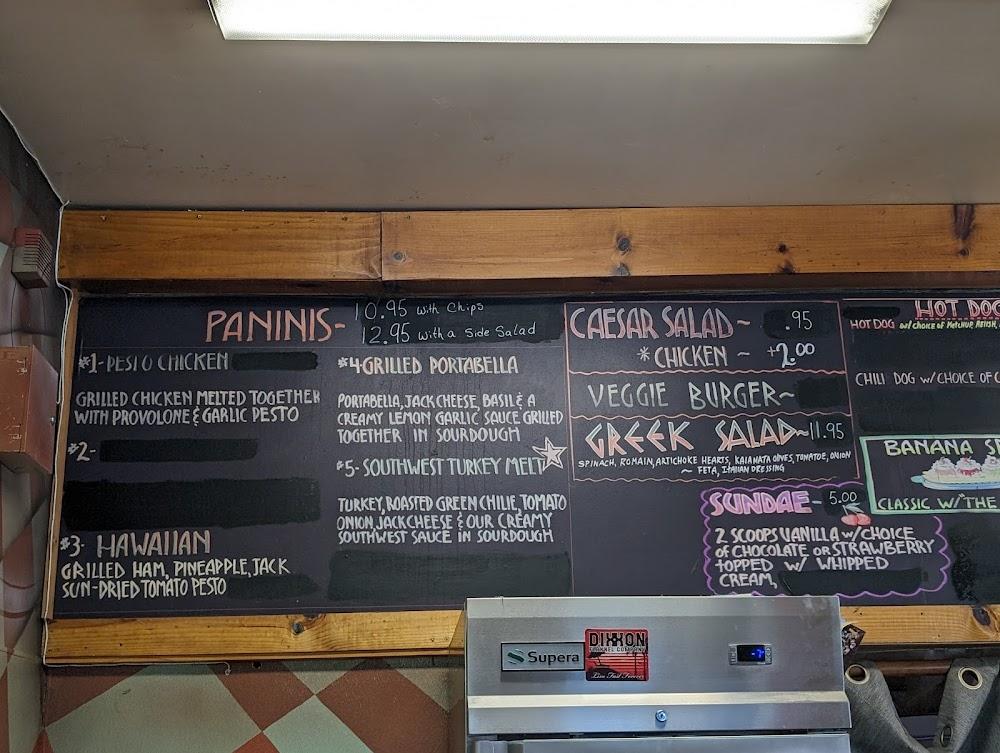 PANINIS-
10.95 with Chips
12.95 with a Side Salad
#1-PESTO CHICKEN
GRILLED CHICKEN MELTED TOGETHER
WITH PROVOLONE & GARLIC PESTO
#2-
#3- HAWAIIAN
GRILLED HAM, PINEAPPLE, JACK
SUN-DRIED TOMATO PESTO
#4-GRILLED PORTABELLA
PORTABELLA, JACK CHEESE, BASIL & A
CREAMY LEMON GARLIC SAUCE GRILLED
TOGETHER IN SOURDOUGH
#5- SOUTHWEST TURKEY MELT
TURKEY, ROASTED GREEN CHILIE, TOMATO
ONION, JACK CHEESE & OUR CREAMY
SOUTHWEST SAUCE IN SOURDOUGH
CAESAR SALAD~ .95
*CHICKEN ~ +2.00
VEGGIE BURGER~
GREEK SALAD~11.95
SPINACH, ROMAIN, ARTICHOKE HEARTS, KALAMATA OLIVES, TOMATOE, ONION
~ FETA, ITALIAN DRESSING
SUNDAE - 5.00
2 SCOOPS VANILLA w/ CHOICE
OF CHOCOLATE OR STRAWBERRY
TOPPED w/ WHIPPED
CREAM,
HOT DOG
HOT DOG w/ CHOICE OF KETCHUP, RELISH,
CHILI DOG w/ CHOICE OF
BANANA SP
CLASSIC W/ THE
Supera
DIXXON
FLANNEL COMPANY
Live Fast Forever